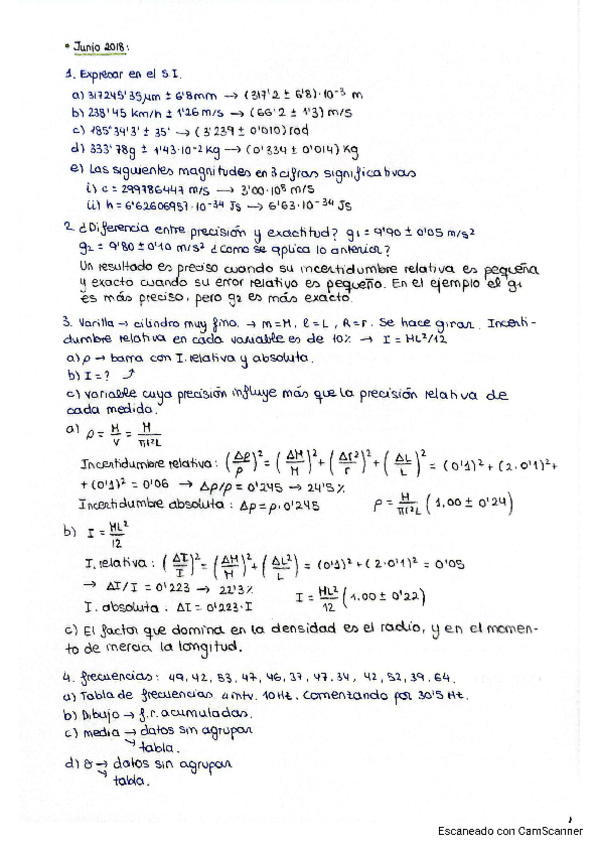 • Junio 2018:
1. Expresar en el S.I.
a) 317245'35 μm ± 6'8mm → (317'2 ± 6'8)·10⁻³ m
b) 238'45 km/h ± 1'26 m/s → (66'2 ± 1'3) m/s
c) 185°34'3' ± 35' → (3'239 ± 0'010) rad
d) 333'78g ± 1'43·10⁻² kg → (0'334 ± 0'014) kg
e) Las siguientes magnitudes en 3 cifras significativas
i) c = 299786447 m/s → 3'00·10⁸ m/s
ii) h = 6'62606957·10⁻³⁴ Js → 6'63·10⁻³⁴ Js
2. ¿Diferencia entre precisión y exactitud? g₁ = 9'90 ± 0'05 m/s²
g₂ = 9'80 ± 0'10 m/s² ¿Como se aplica lo anterior?
Un resultado es preciso cuando su incertidumbre relativa es pequeña
y exacto cuando su error relativo es pequeño. En el ejemplo el g₁
es más preciso, pero g₂ es más exacto.
3. Varilla → cilindro muy fino. → m=M, l=L, R=r. Se hace girar. Incerti-
dumbre relativa en cada variable es de 10% → I = ML²/12
a) ρ → barra con I. relativa y absoluta.
b) I = ?
c) Variable cuya precisión influye más que la precisión relativa de
cada medida.
a) ρ = M/V = M/πr²L
Incertidumbre relativa: (Δρ/ρ)² = (ΔM/M)² + (Δr²/r)² + (ΔL/L)² = (0'1)² + (2·0'1)² +
+ (0'1)² = 0'06 → Δρ/ρ = 0'245 → 24'5%
Incertidumbre absoluta: Δρ = ρ·0'245 ρ = M/πr²L (1,00 ± 0'24)
b) I = ML²/12
I. relativa: (ΔI/I)² = (ΔM/M)² + (ΔL²/L)² = (0'1)² + (2·0'1)² = 0'05
→ ΔI/I = 0'223 → 22'3% I = ML²/12 (1.00 ± 0'22)
I. absoluta: ΔI = 0'223·I
c) El factor que domina en la densidad es el radio, y en el momen-
to de inercia la longitud.
4. frecuencias: 49, 42, 53, 47, 46, 37, 47, 34, 42, 52, 39, 64.
a) Tabla de frecuencias 4 intv. 10 Hz. Comenzando por 30'5 Hz.
b) Dibujo → f.r. acumuladas.
c) media → datos sin agrupar
tabla.
d) → datos sin agrupar
tabla.
Escaneado con CamScanner